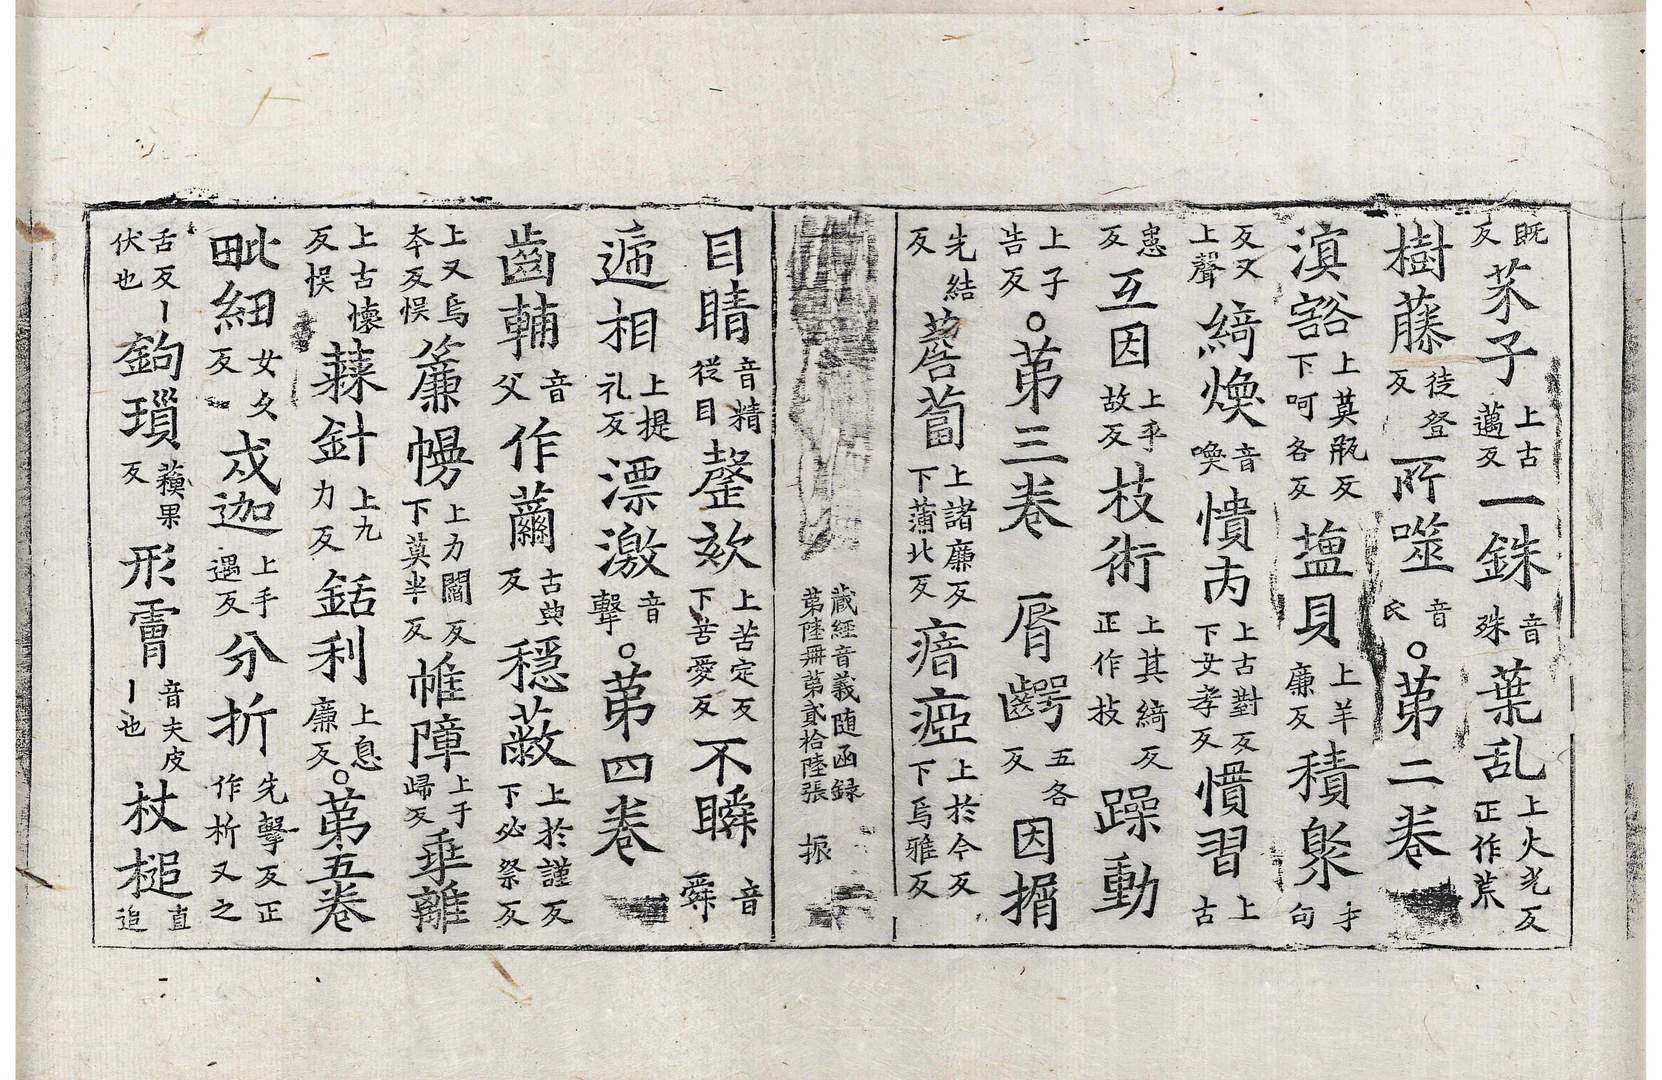 既反芥子上古邁反一銖音殊葉乱上火光反正作荒
樹藤徒登反所噬音氏〇第二巻
滇谿上莫瓶反下呵各反塩貝上羊廉反積聚才句
反又上聲綺煥音喚憒丙上古對反下女孝反慣習上古
患反互因上乎故反枝術上其綺反正作技躁動上子
告反〇第三巻脣齶五各反因揟
先結反薝蔔上諸廉反下蒲北反瘖瘂上於今反下烏雅反
藏經音義随函録第陸冊第貳拾陸張 振
目睛音精從目謦欬上苦定反下苦愛反不瞬音舜
遞相上提礼反漂激音擊〇第四巻
齒輔音父作繭古典反穩蔽上於謹反下必祭反
上又烏本反悮簾幔上力閻反下莫半反帷障上于歸反乖離
上古懷反悮蕀針上九力反銛利上息廉反〇第五巻
毗紐女夂反戍迦上手遇反分折先擊反正作析又之
舌反丨鉤瑣蘓果反形膚音夫皮丨也杖槌直追
伏也